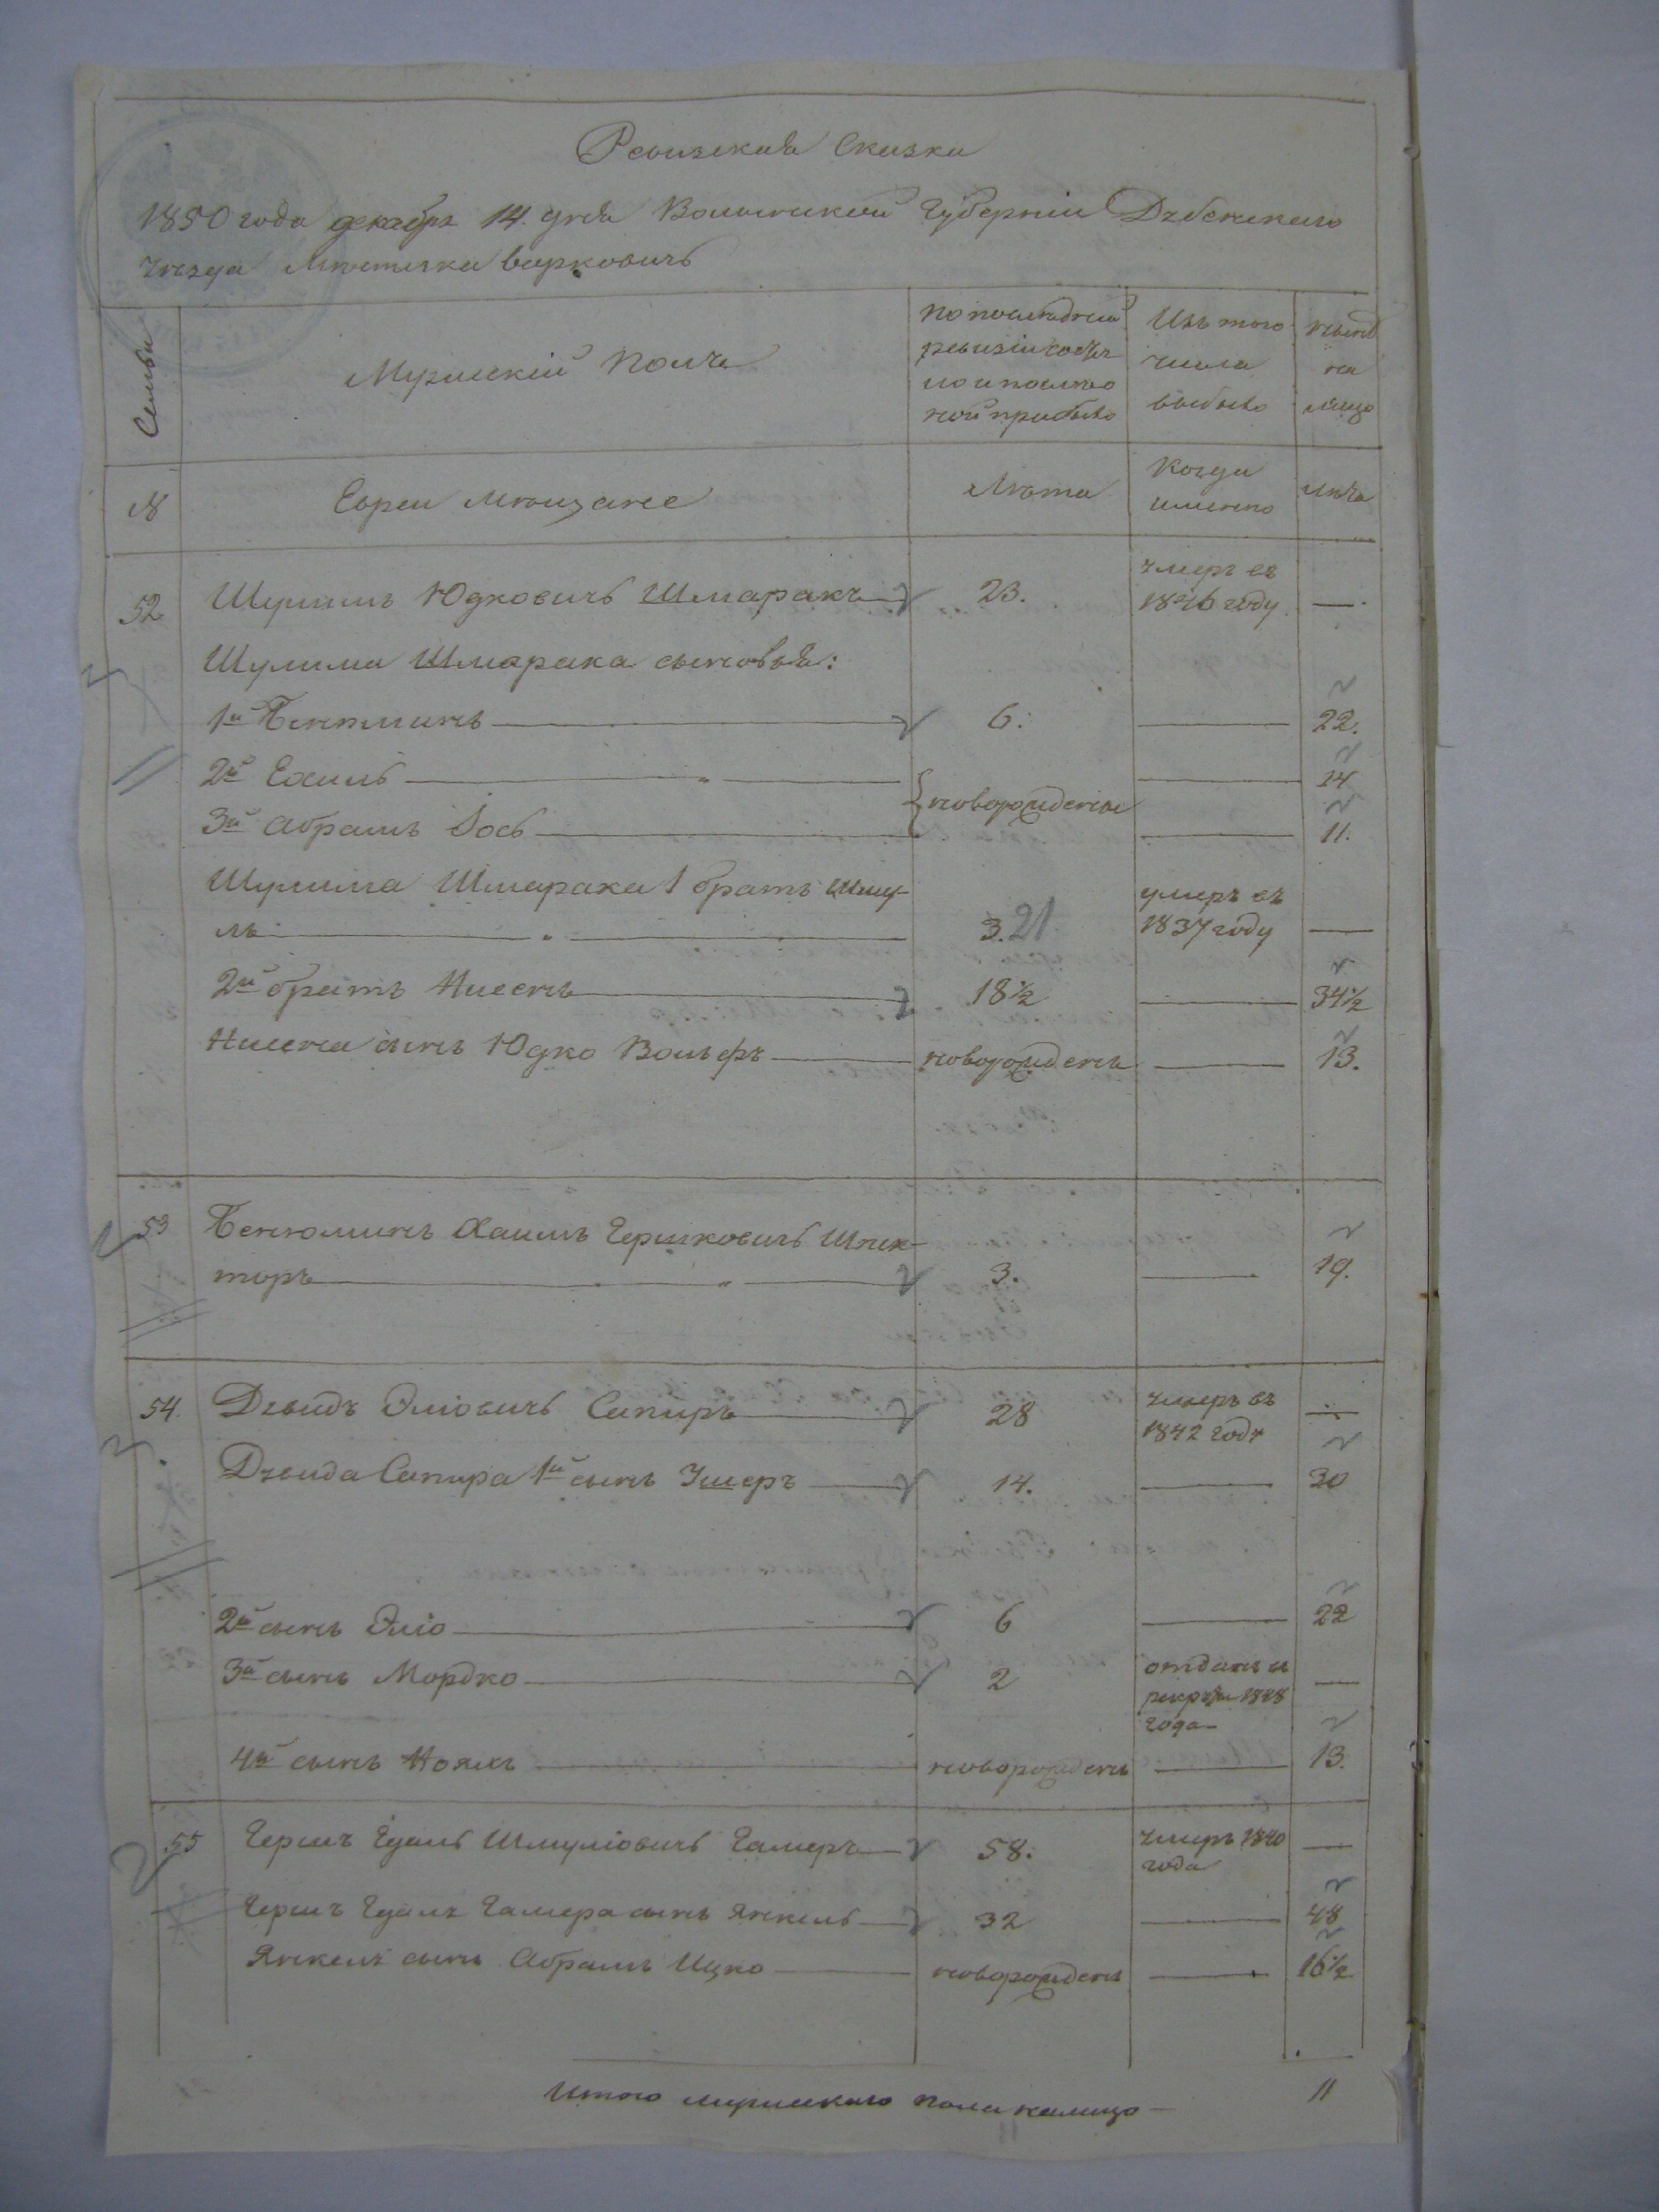 Ревизская Сказка
1850 года декабря 14. дня Волынской Губерніи Дубенскаго
Уезда Местечка Варковичь
Семьи
Мужескій Полъ
По последней
ревизіи состоя
ло и после
ной прибыло
Изъ того
числа
выбыло
ныне
на
лицо
№
Евреи Мещане
Лета
Когда
именно
Лета
52
Шулимъ Юдковичь Шмаракъ
23.
умеръ въ
1846 году
Шулима Шмарака сыновья:
1й Бентминъ
6.
22.
2й Ехиль
14
новорожденые
3й Абрамъ Іось
11.
Шулима Шмарака 1 братъ Шму-
ль
3. 21
умеръ въ
1837 году
2й братъ Нисенъ
18½
34½
Нисена сынъ Юдко Вольфъ
новорожденъ
13.
53
Бенюминъ Хаимъ Гершковичь Шпек-
торъ
3.
19.
54.
Дувидъ Эліовичь Сапиръ
28
умеръ въ
1842 году
Дувида Сапира 1й сынъ Ушеръ
14.
30
2й сынъ Эліо
6
22
3й сынъ Мордко
2
отданъ въ
рекруты 1848
года
4й сынъ Нояхъ
новорожденъ
13.
55
Гершъ Едаль Шмуліовичь Гамеръ
58.
умеръ 1840
года
Гершъ Едаля Гамера сынъ Янкель
32
48
Янкеля сынъ Абрамъ Ицко
новорожденъ
16½
Итого мужескаго пола налицо
11